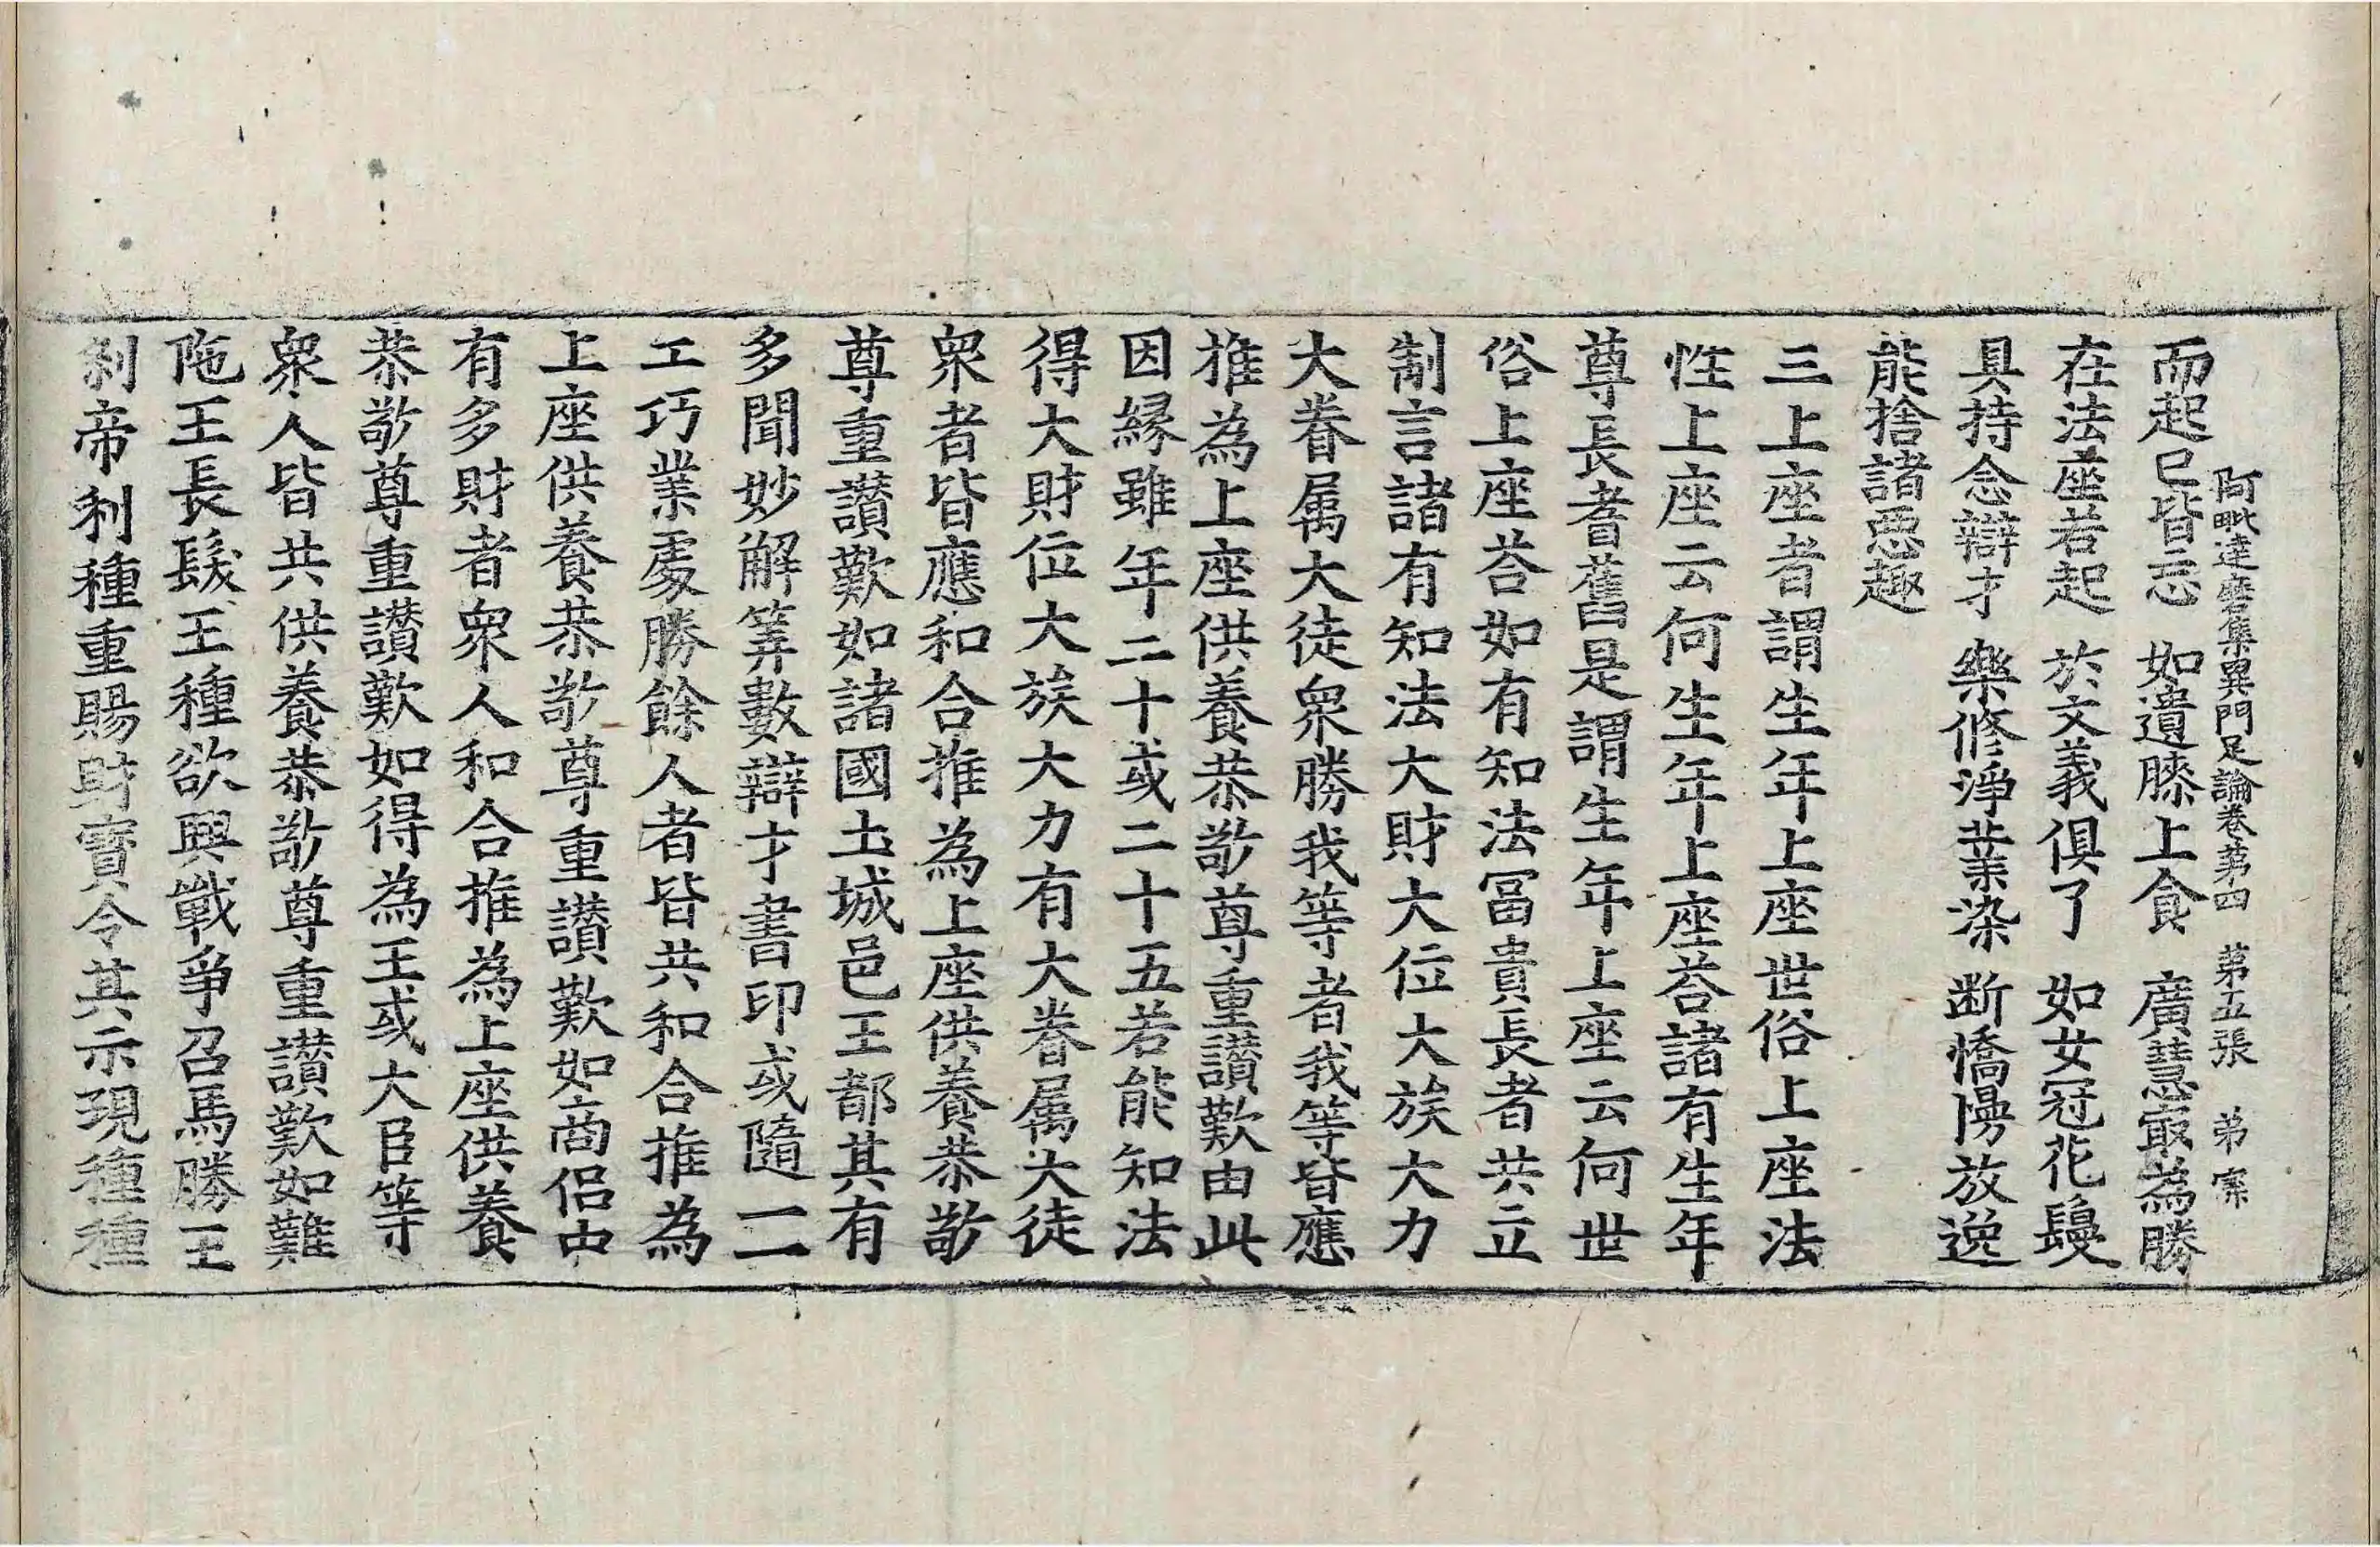 阿毗達磨集異門足論卷第四　第五張　弟
而起已皆忘　如遺膝上食　廣慧㝡為勝
在法座若起　於文義俱了　如女冠花鬘
具持念辯才　樂修淨業染　断憍慢放逸
能捨諸惡趣
三上座者謂生年上座世俗上座法
性上座云何生年上座荅諸有生年
尊長耆舊是謂生年上座云何世
俗上座荅如有知法冨貴長者共立
制言諸有知法大財大位大族大力
大眷属大徒衆勝我等者我等皆應
推為上座供養恭敬尊重讃歎由此
因縁雖年二十或二十五若能知法
得大財位大族大力有大眷属大徒
衆者皆應和合推為上座供養恭敬
尊重讃歎如諸國土城邑王都其有
多聞妙解筭數辯才書印或隨一一
工巧業處勝餘人者皆共和合推為
上座供養恭敬尊重讃歎如商侣中
有多財者衆人和合推為上座供養
恭敬尊重讃歎如得為王或大臣等
衆人皆共供養恭敬尊重讃歎如難
陁王長髮王種欲興戰爭召馬勝王
刹帝利種重賜財寳令其示現種種